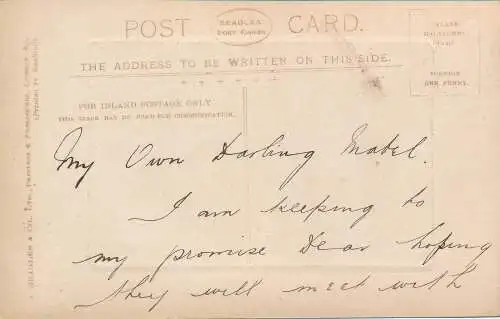 POST CARD.
BEAGLES'
POST CARDS
THE ADDRESS TO BE WRITTEN ON THIS SIDE.
PLACE
HALFPENNY
STAMP
FOREIGN
ONE PENNY.
FOR INLAND POSTAGE ONLY
THIS SPACE MAY BE USED FOR COMMUNICATION.
My Own Darling Mabel.
I am keeping to
my promise Dear hoping
they will meet with